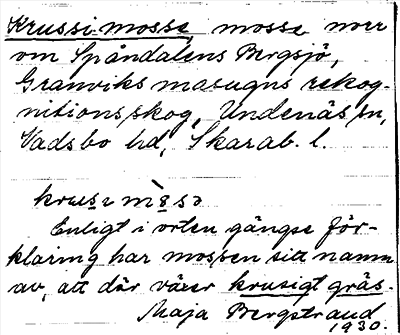 Krussemosse, mosse norr
om Spåndalens Bergsjö,
Granviks masugns rekog-
nitionsskog, Undenäs sn,
Vadsbo hd, Skarab. l.
Enligt i orten gängse för-
klaring har mossen sitt namn
av, att där växer krusigt gräs.
Maja Bergstrand
1930.